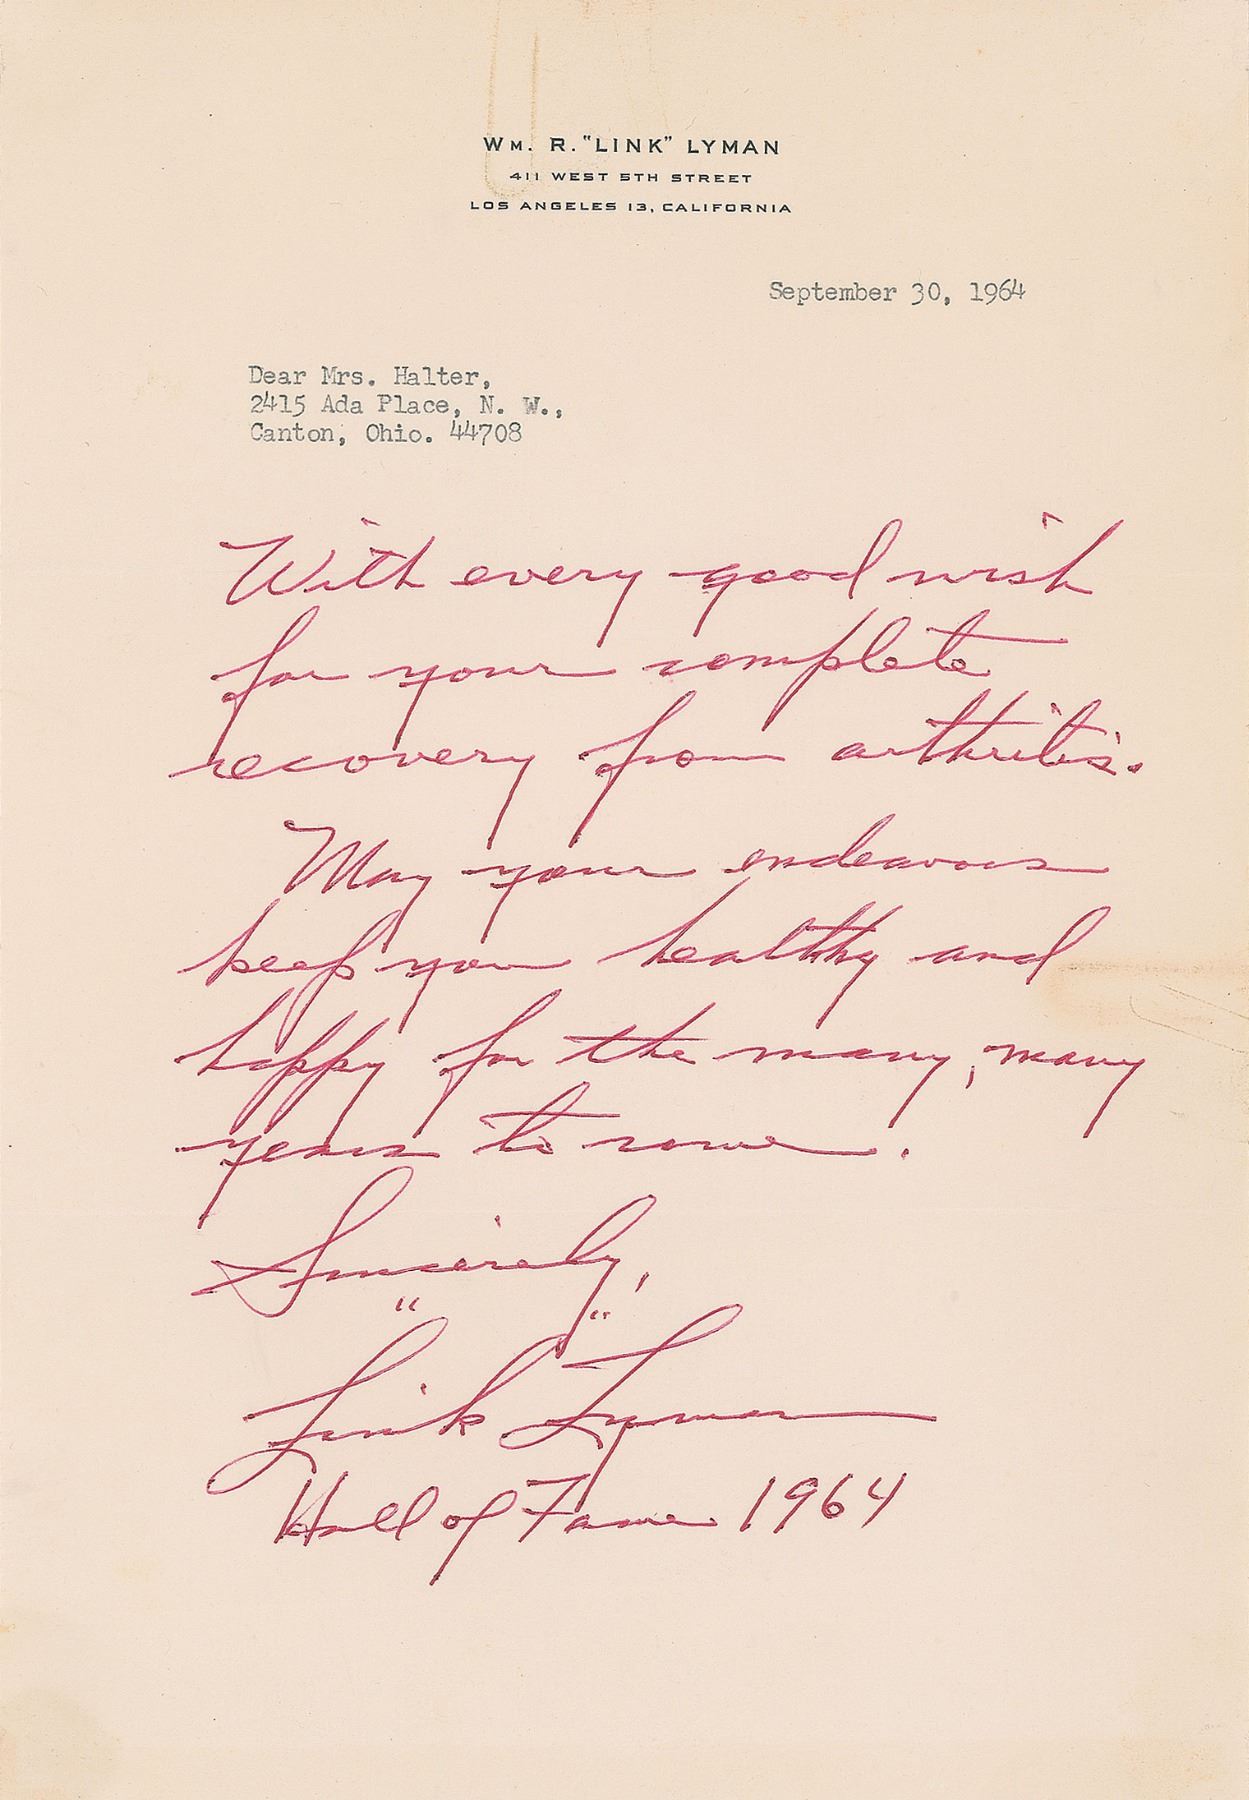 WM. R. "LINK" LYMAN
411 WEST 5TH STREET
LOS ANGELES 13, CALIFORNIA
September 30, 1964
Dear Mrs. Halter,
2415 Ada Place, N. W.,
Canton, Ohio. 44708
With every good wish
for your complete
recovery from arthritis.
May your endeavors
keep you healthy and
happy for the many, many
years to come.
Sincerely,
"Link" Lyman
Hall of Fame 1964